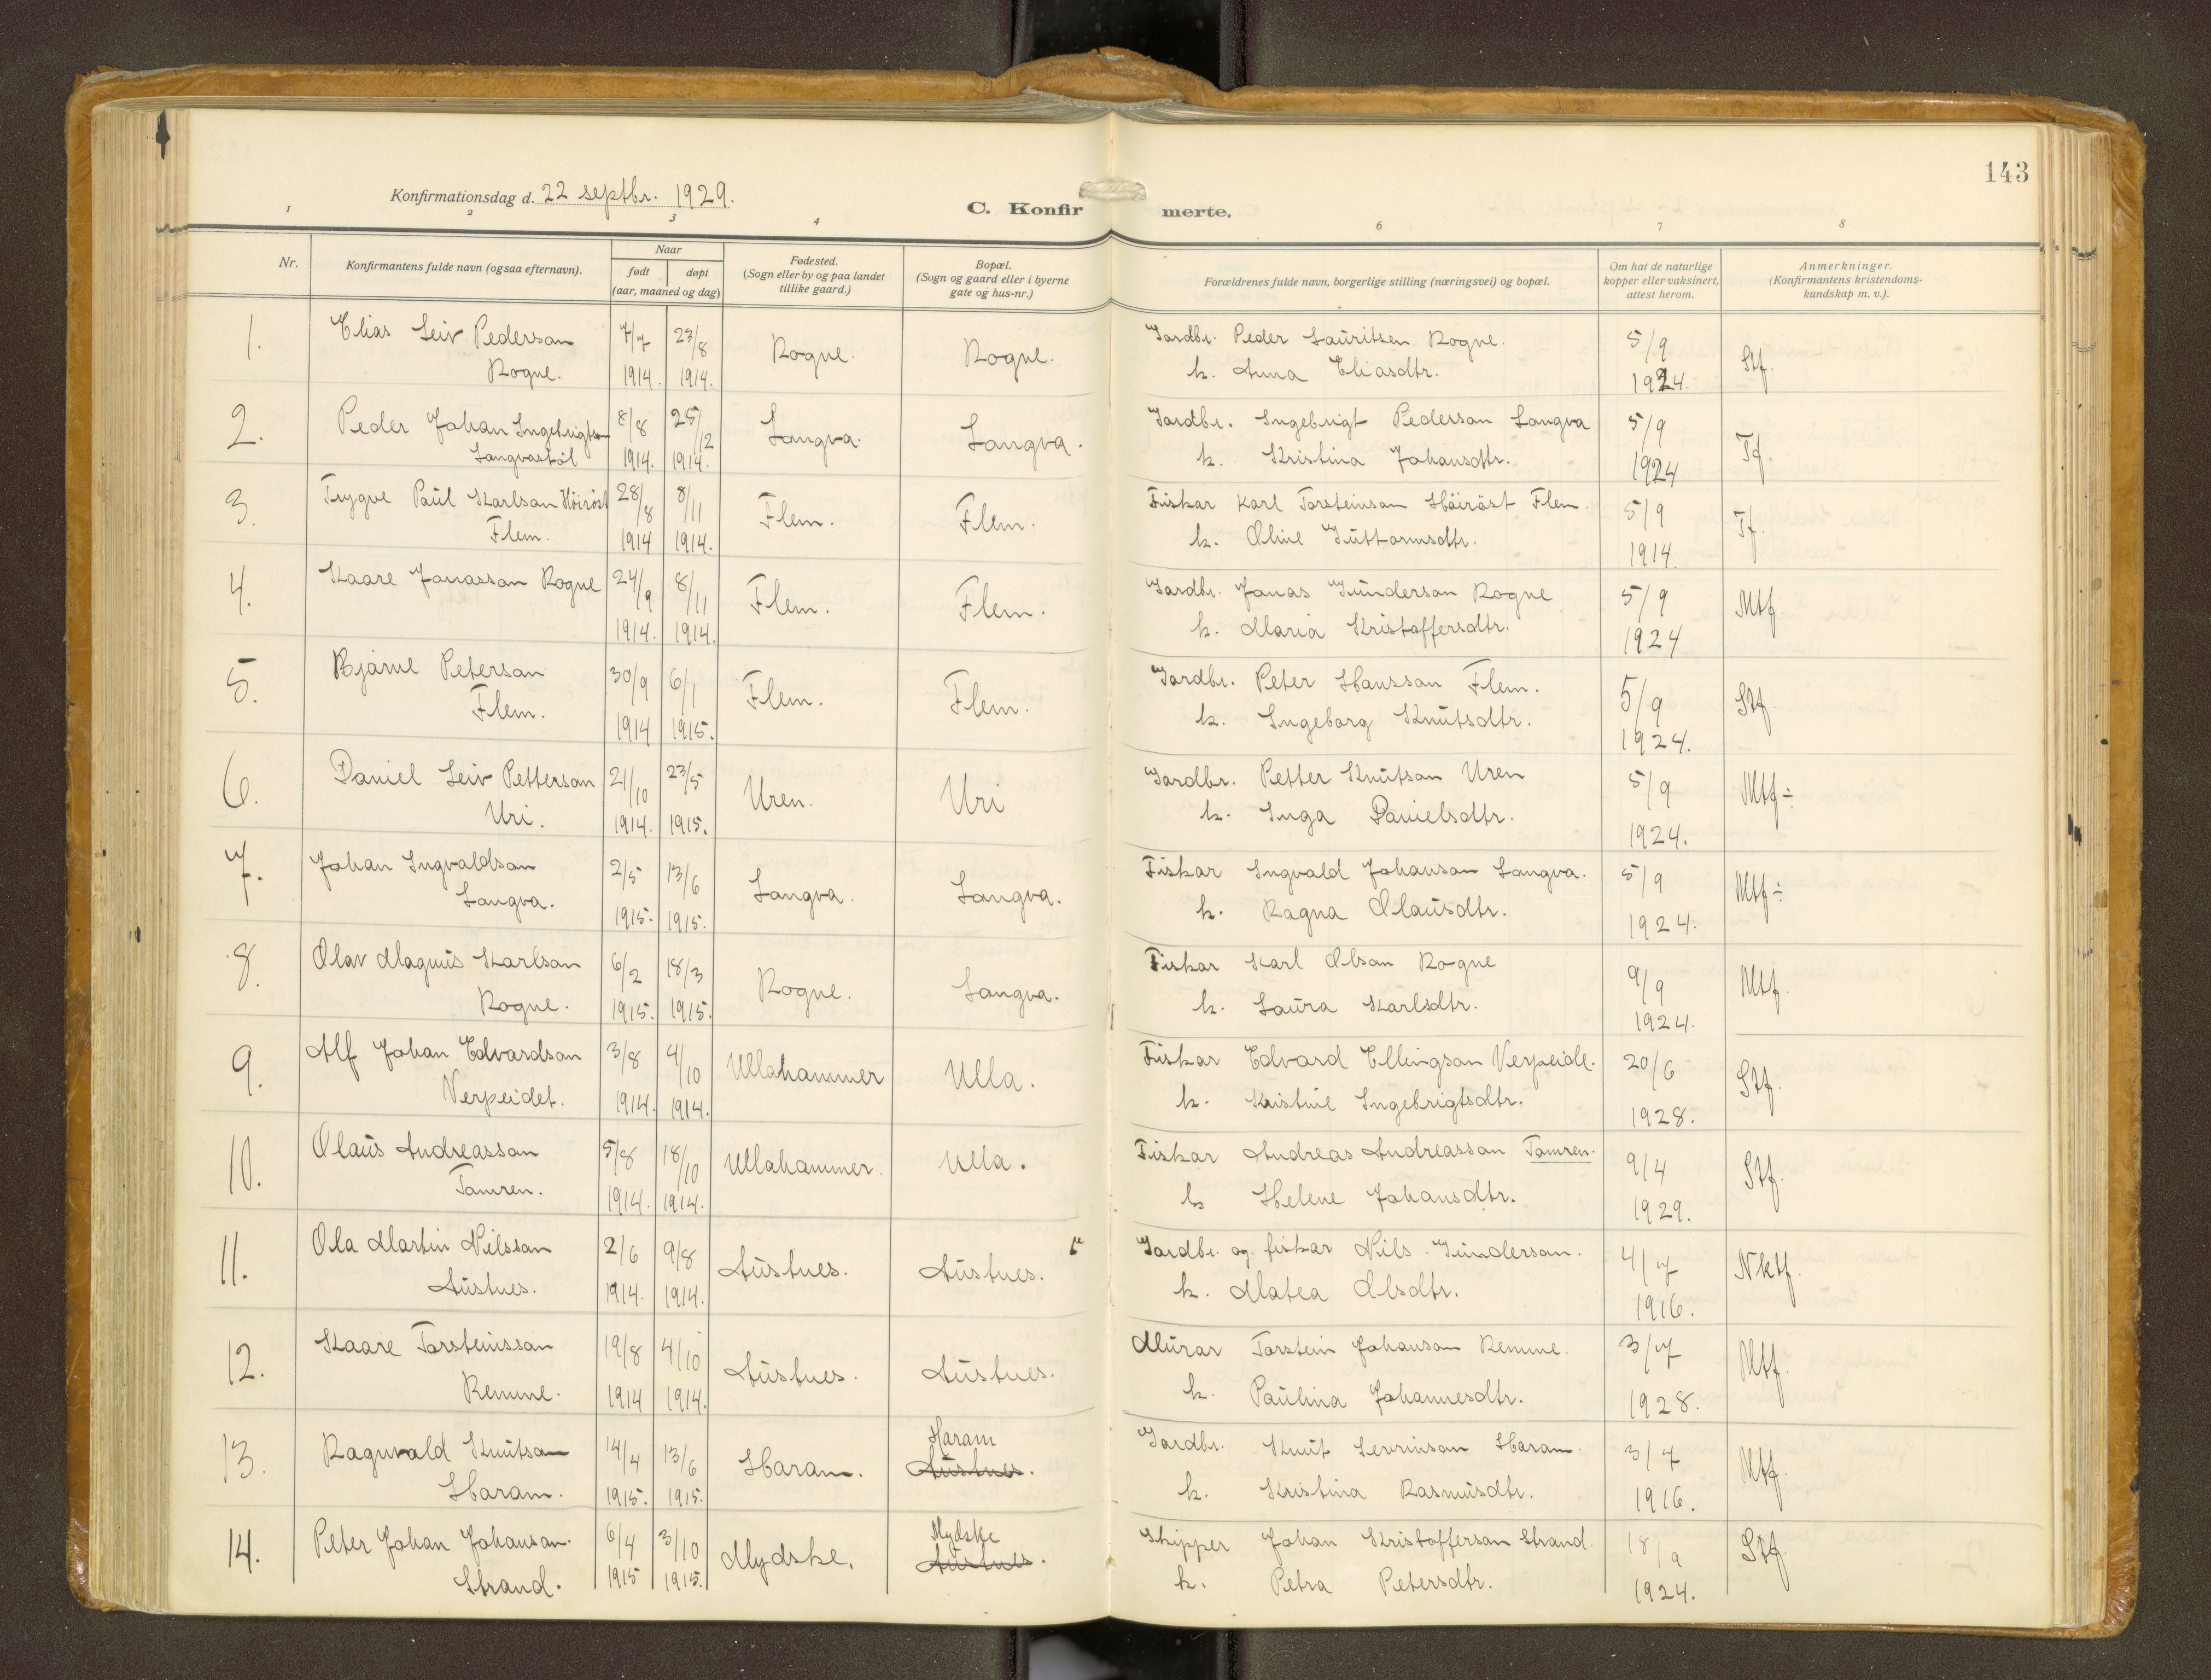 143
Konfirmationsdag d. 22 septbr. 1929.
C. Konfirmerte.
1 2 3 4 6 7 8
Nr.
Konfirmantens fulde navn (ogsaa efternavn).
Naar
født
døpt
(aar, maaned og dag)
Fødested.
(Sogn eller by og paa landet
tillike gaard.)
Bopæl.
(Sogn og gaard eller i byerne
gate og hus-nr.)
Forældrenes fulde navn, borgerlige stilling (næringsvei) og bopæl.
Om hat de naturlige
kopper eller vaksinert,
attest herom.
Anmerkninger.
(Konfirmantens kristendoms-
kundskap m. v.).
1. Elias Leiv Pederson 7/7 23/8 Rogne. Rogne. Jardbr. Peder Lauritsen Rogne. 5/9 Stf.
Rogne. 1914. 1914. k. Anna Eliasdtr. 1924.
2. Peder Johan Ingebrigtson 8/8 25/12 Langva. Langva. Jardbr. Ingebrigt Pederson Langva 5/9 Tf.
Langvastøl 1914. 1914. k. Kristina Johansdtr. 1924
3. Trygve Paul Karlson Höiröst 28/8 8/11 Flem. Flem. Fiskar Karl Torsteinson Höiröst Flem. 5/9 Tf.
Flem. 1914 1914. k. Oline Guttormsdtr. 1914.
4. Kaare Jonasson Rogne 24/9 8/11 Flem. Flem. Jardbr. Jonas Gunderson Rogne 5/9 Mtf.
1914. 1914. k. Maria Kristoffersdtr. 1924
5. Bjarne Peterson 30/9 6/1 Flem. Flem. Jardbr. Peter Hansson Flem. 5/9 Stf.
Flem. 1914 1915. k. Ingeborg Knutsdtr. 1924.
6. Daniel Leiv Petterson 21/10 23/5 Uren. Uri Jardbr. Petter Knutson Uren 5/9 Mtf÷
Uri. 1914. 1915. k. Inga Danielsdtr. 1924.
7. Johan Ingvaldson 2/5 13/6 Langva. Langva. Fiskar Ingvald Johanson Langva. 5/9 Mtf÷
Langva. 1915. 1915. k. Ragna Olausdtr. 1924.
8. Olav Magnus Karlson 6/2 18/3 Rogne. Langva. Fiskar Karl Olson Rogne 9/9 Mtf.
Rogne. 1915. 1915. k. Laura Karlsdtr. 1924.
9. Alf Johan Edvardson 3/8 4/10 Ullahammer Ulla. Fiskar Edvard Ellingson Verpeide. 20/6 Stf.
Verpeidet. 1914. 1914. k. Kristine Ingebrigtsdtr. 1928.
10. Olaus Andreasson 5/8 18/10 Ullahammer. Ulla. Fiskar Andreas Andreasson Tamren. 9/4 Stf.
Tamren. 1914. 1914. k Helene Johansdtr. 1929.
11. Ola Martin Nilsson 2/6 9/8 Austnes. Austnes. Jardbr. og fiskar Nils Gunderson. 4/7 Nktf.
Austnes. 1914. 1914. k. Matea Olsdtr. 1916.
12. Kaare Torsteinsson 19/8 4/10 Austnes. Austnes. Murar Torstein Johanson Remme. 3/7 Mtf.
Remme. 1914 1914. k. Paulina Johannesdtr. 1928.
13. Ragnvald Knutson 14/4 13/6 Haram. Haram Austnes. Jardbr. Knut Sevrinson Haram. 3/7 Mtf.
Haram. 1915. 1915. k. Kristina Rasmusdtr. 1916.
14. Peter Johan Johanson. 6/4 3/10 Mydske. Mydske Austnes. Skipper Johan Kristofferson Strand. 18/9 Stf.
Strand. 1915 1915. k. Petra Petersdtr. 1924.